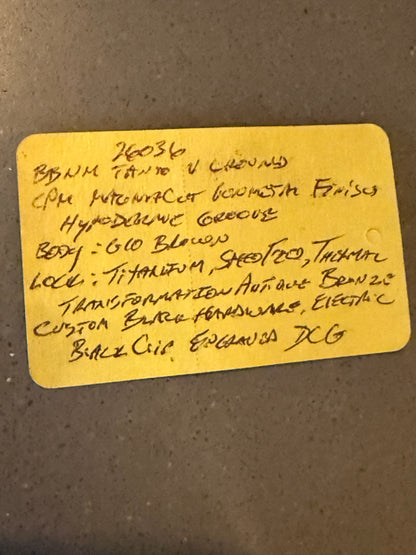 26036
BBNM TANTO V GROUND
CPM MAGNACUT GUNMETAL FINISH
HYPODERMIC GROOVE
BODY: G10 BROWN
LOCK: TITANIUM, THERMAL
TRANSFORMATION ANTIQUE BRONZE
CUSTOM BLACK HARDWARE, ELECTRIC
BLACK CLIP ENGRAVED DCG